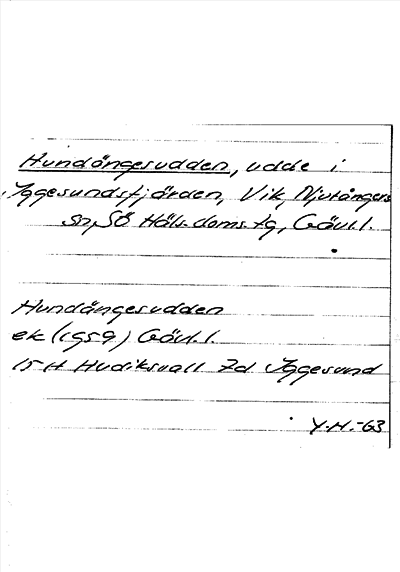 Hundängesudden, udde i
Iggesundsfjärden, Vik, Njutångers
sn, SÖ Häls. doms. tg, Gävl. l.
Hundängesudden
ek (1959) Gävl. l.
15 H Hudiksvall 7d Iggesund
Y.H.-63